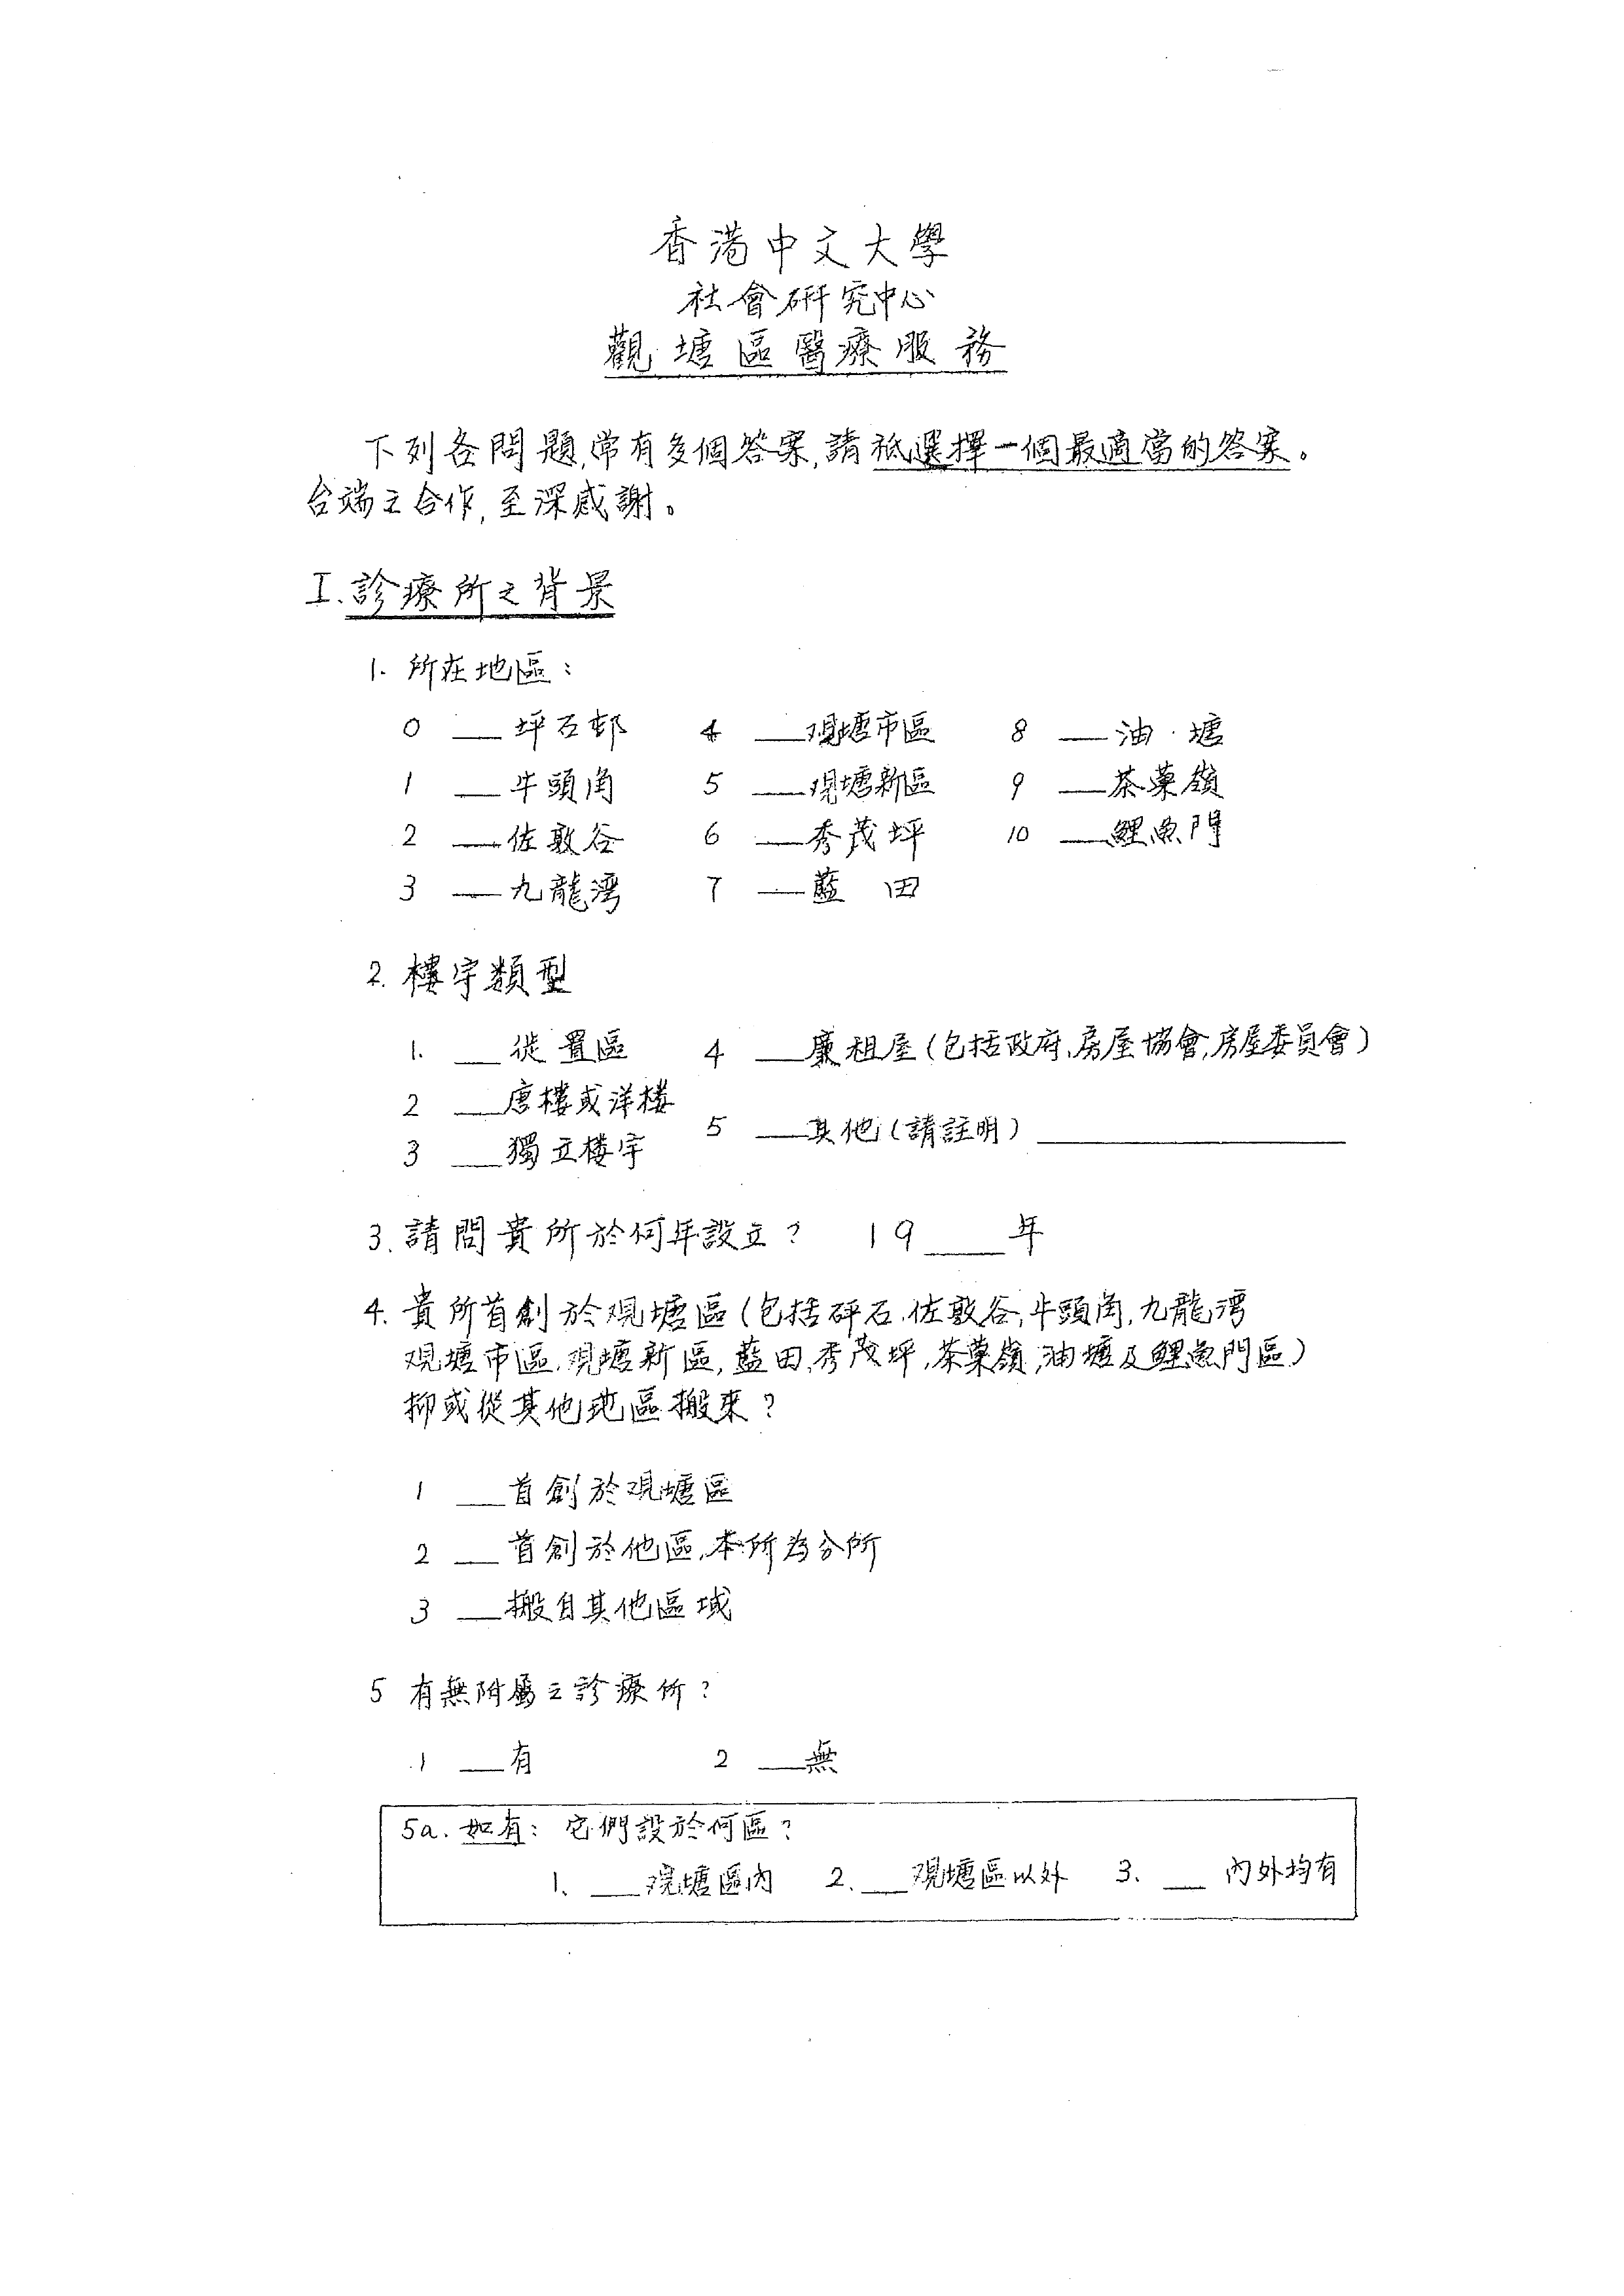 香港中文大學
社會研究中心
觀塘區醫療服務
下列各問題,常有多個答案,請祗選擇一個最適當的答案。
台端之合作,至深感謝。
I. 診療所之背景
1. 所在地區:
0 __坪石邨 4 __观塘市區 8 __油塘
1 __牛頭角 5 __观塘新區 9 __茶菓嶺
2 __佐敦谷 6 __秀茂坪 10 __鯉魚門
3 __九龍湾 7 __藍田
2. 樓宇類型
1. __徙置區 4 __廉租屋(包括政府,房屋協會,房屋委員會)
2 __唐樓或洋楼
5 __其他(請註明)__________
3 __獨立楼宇
3. 請問貴所於何年設立? 19____年
4. 貴所首創於观塘區(包括砰石,佐敦谷,牛頭角,九龍湾
观塘市區,观塘新區,藍田,秀茂坪,茶菓嶺,油塘及鯉魚門區)
抑或從其他地區搬來?
1 __首創於观塘區
2 __首創於他區,本所為分所
3 __搬自其他區域
5 有無附屬之診療所?
1 __有 2 __無
5a. 如有: 它們設於何區?
1. __观塘區內 2. __观塘區以外 3. __內外均有